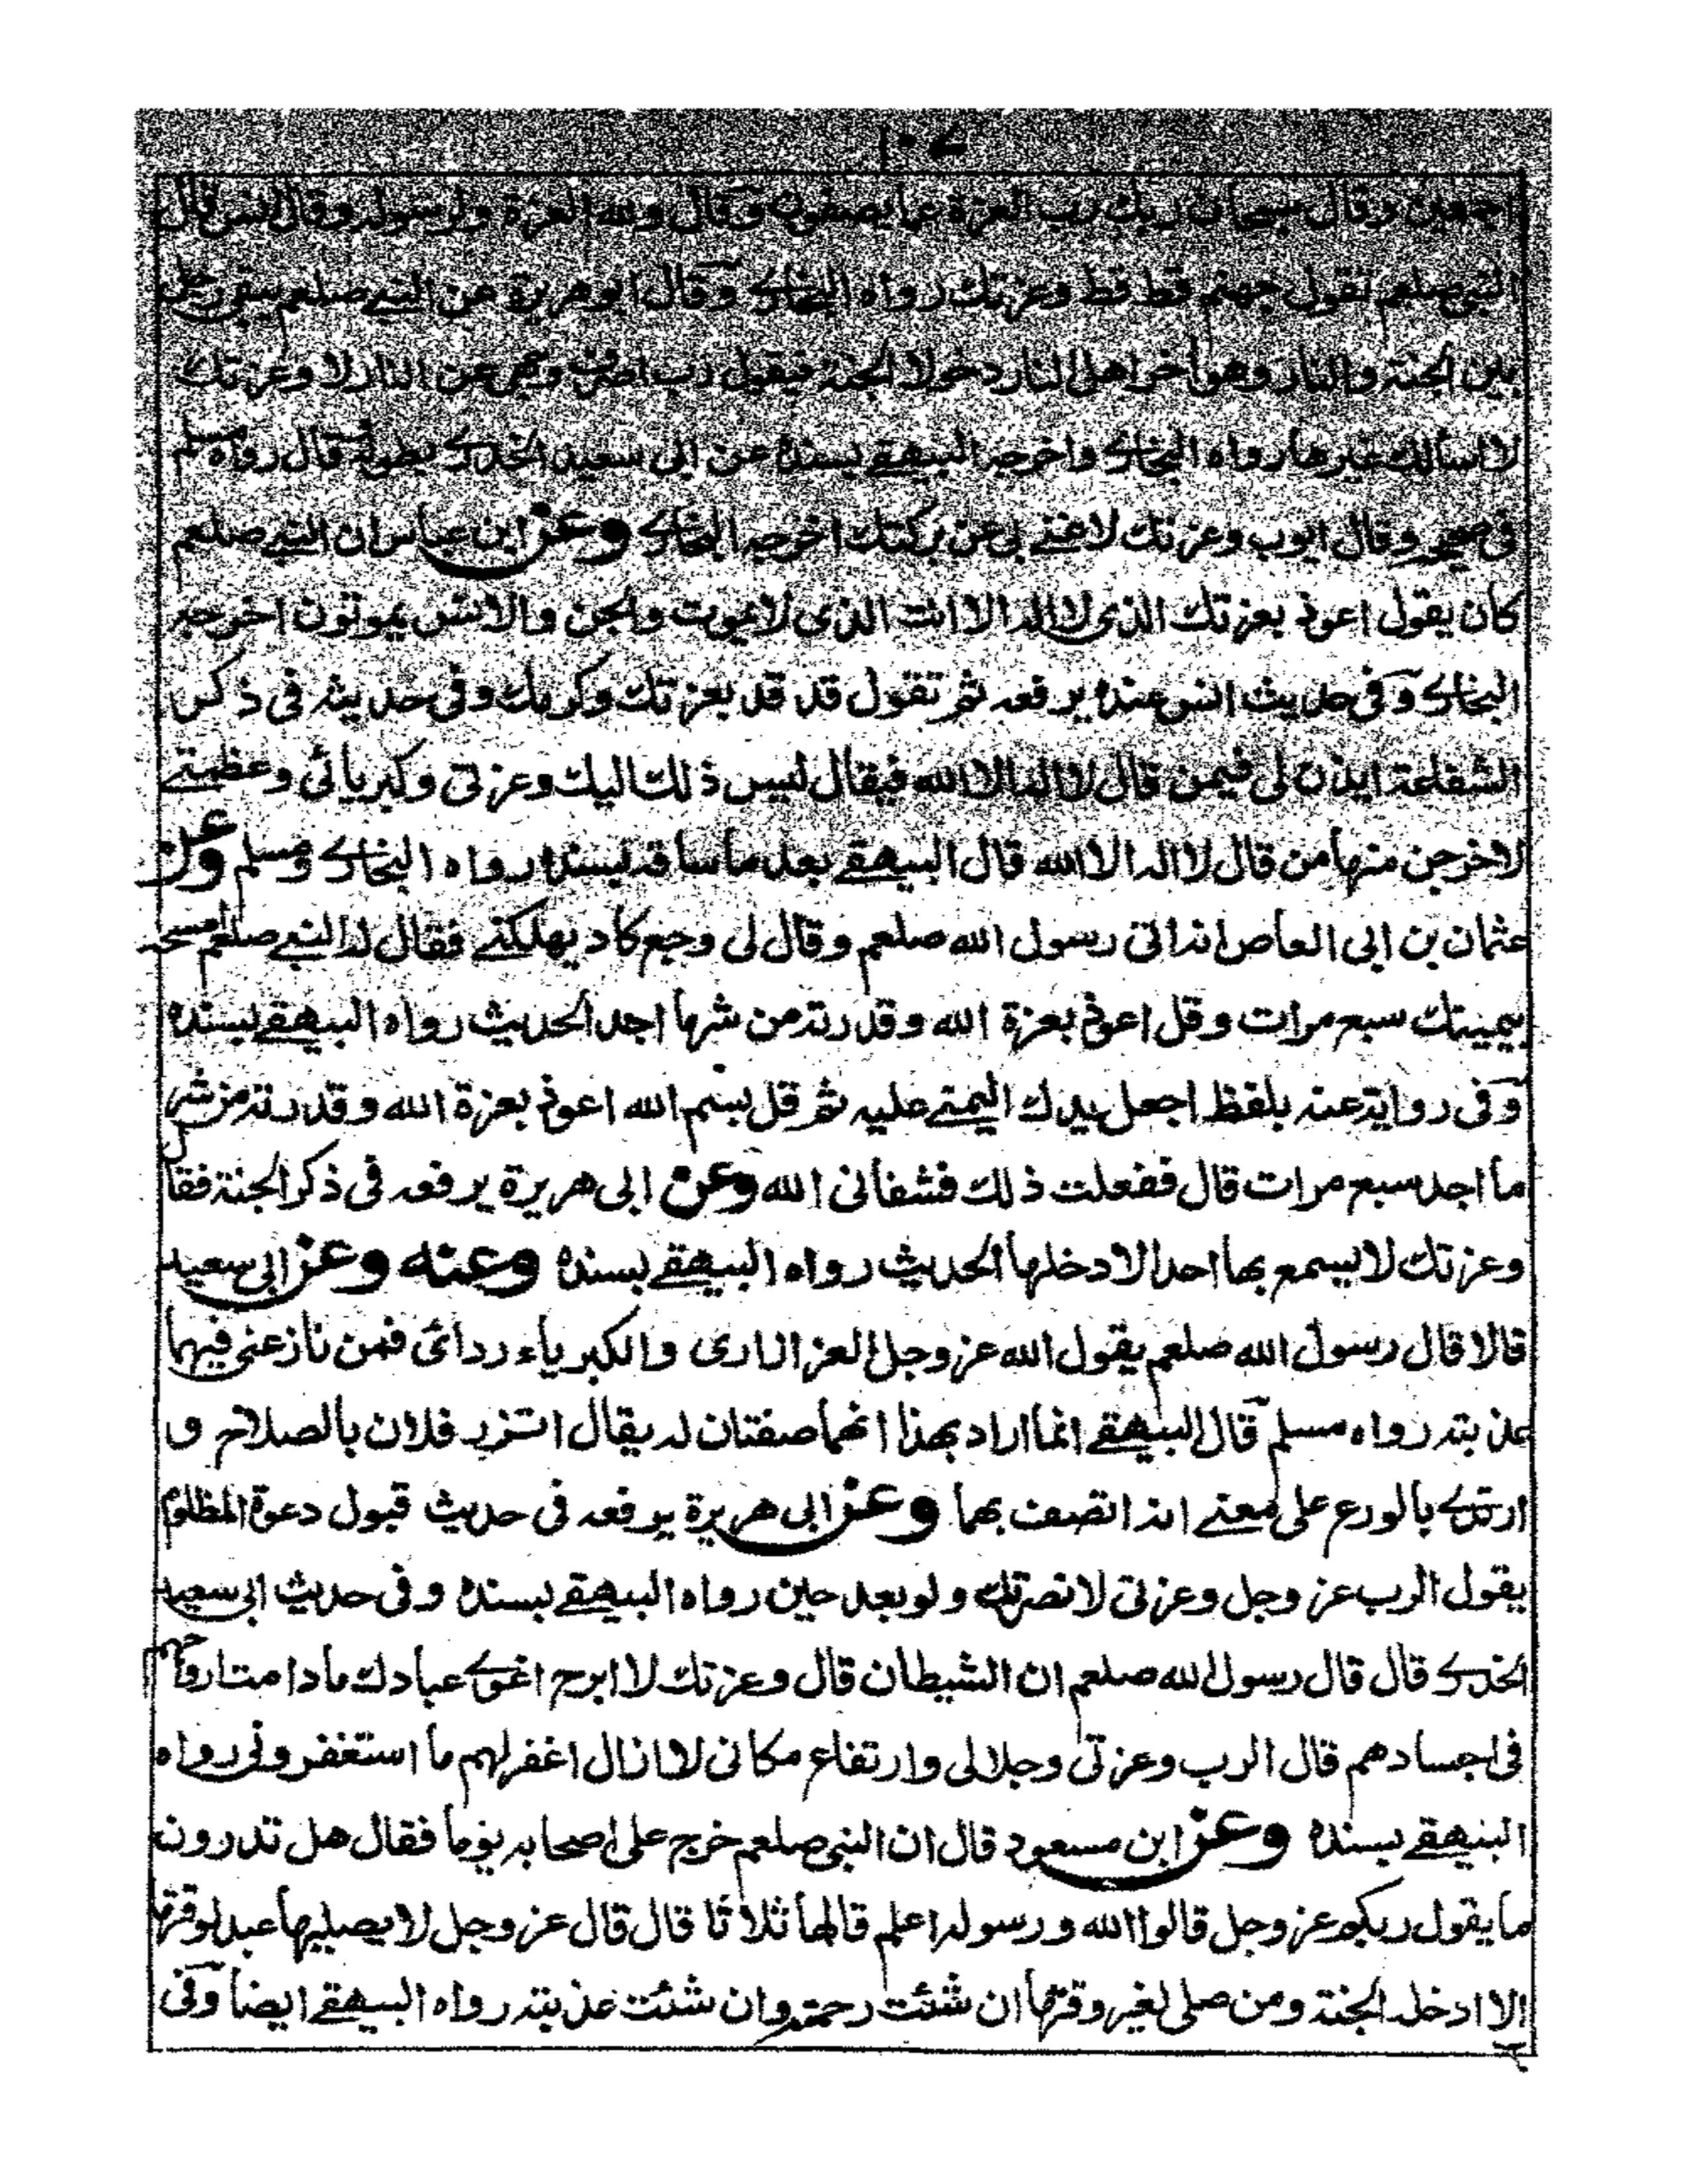 ١٠٧
اجمعين وقال سبحان ربك رب العزة عما يصفون وقال ولله العزة ولرسوله وقال انس قال
النبي صلعم تقول جهنم قط قط وعزتك رواه البخاري وقال ابو هريرة عن النبي صلعم يبقى رجل
بين الجنة والنار وهو أخر اهل النار دخولا الجنة فيقول رب اصرف وجهي عن النار لا وعزتك
لا اسألك غيرها رواه البخاري واخرجه البيهقي بسنده عن ابي سعيد الخدري بطوله قال رواه مسلم
في صحيحه وقال ايوب وعزتك لا غنى بي عن بركتك اخرجه البخاري وعن ابن عباس ان النبي صلعم
كان يقول اعوذ بعزتك الذي لا اله الا انت الذي لا يموت والجن والانس يموتون اخرجه
البخاري وفي حديث انس عنده يرفعه ثم تقول قد قد بعزتك وكرمك وفي حديثه في ذكر
الشفاعة ايذن لي فيمن قال لا اله الا الله فيقال ليس ذلك اليك وعزتي وكبريائي وعظمتي
لاخرجن منها من قال لا اله الا الله قال البيهقي بعد ما ساقه بسنده رواه البخاري ومسلم وعن
عثمان بن ابي العاص انه اتى رسول الله صلعم وقال لي وجع كاد يهلكني فقال له النبي صلعم امسحه
بيمينك سبع مرات وقل اعوذ بعزة الله وقدرته من شر ما اجد الحديث رواه البيهقي بسنده
وفي رواية عنه بلفظ اجعل يدك اليمنى عليه ثم قل بسم الله اعوذ بعزة الله وقدرته من شر
ما اجد سبع مرات قال ففعلت ذلك فشفاني الله وعن ابي هريرة يرفعه في ذكر الجنة فقال
وعزتك لا يسمع بها احد الا دخلها الحديث رواه البيهقي بسنده وعنه وعن ابي سعيد
قالا قال رسول الله صلعم يقول الله عز وجل العز ازارى والكبرياء ردائى فمن نازعني فيهما
عذبته رواه مسلم قال البيهقي انما اراد بهذا انهما صفتان له يقال اتزر فلان بالصلاح و
ارتدى بالورع على معنى انه اتصف بهما وعن ابي هريرة يرفعه في حديث قبول دعوة المظلوم
يقول الرب عز وجل وعزتي لانصرنك ولو بعد حين رواه البيهقي بسنده وفي حديث ابي سعيد
الخدري قال قال رسول الله صلعم ان الشيطان قال وعزتك لا ابرح اغوي عبادك ما دامت ارواحهم
في اجسادهم قال الرب وعزتي وجلالي وارتفاع مكاني لا ازال اغفر لهم ما استغفروني رواه
البيهقي بسنده وعن ابن مسعود قال ان النبي صلعم خرج على اصحابه يوما فقال هل تدرون
ما يقول ربكم عز وجل قالوا الله ورسوله اعلم قالها ثلاثا قال قال عز وجل لا يصليها عبد لوقتها
الا ادخله الجنة ومن صلى لغير وقتها ان شئت رحمته وان شئت عذبته رواه البيهقي ايضا وفي